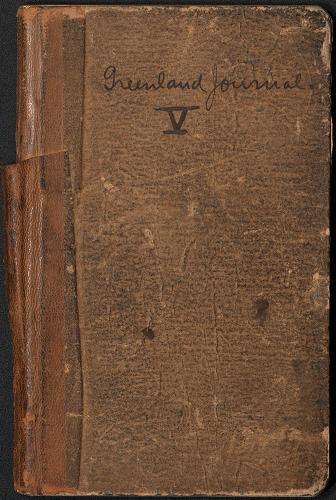 Greenland Journal.
V